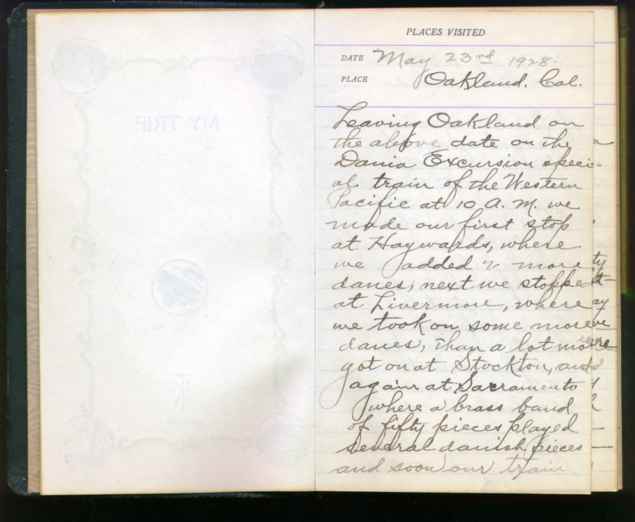 PLACES VISITED
DATE May 23rd 1928.
PLACE Oakland. Cal.
Leaving Oakland on
the above date on the
Dania Excursion speci-
al train of the Western
Pacific at 10 A. M. we
made our first stop
at Haywards, where
we added 2 more
danes, next we stopped
at Livermore, where
we took on some more
danes, than a lot more
got on at Stockton, and
again at Sacramento
where a brass band
of fifty pieces played
several danish pieces
and soon our train
MY TRIP